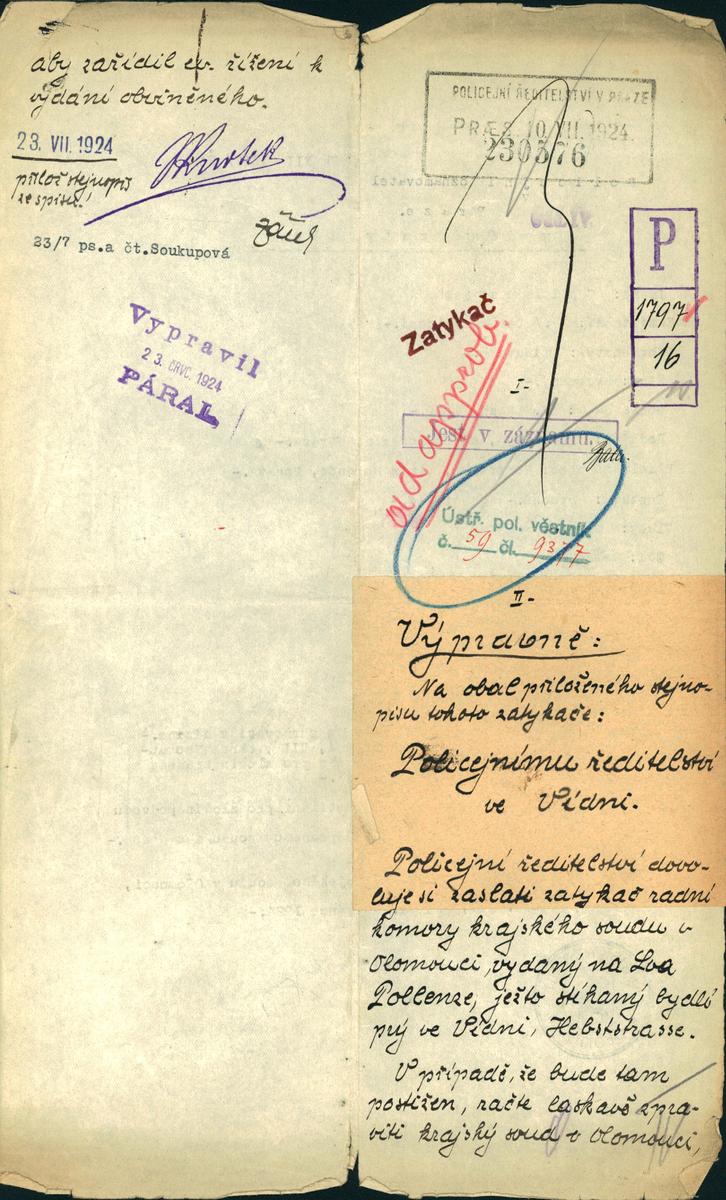 aby zařídil ev. řízení k
vydání obviněného.
23. VII. 1924
přilož stejnopis
ze spisu!
23/7 ps.a čt.Soukupová
Vypravil
23. ČRVC. 1924
PÁRAL
POLICEJNÍ ŘEDITELSTVÍ V PRAZE
PRÆS. 10/VII. 1924
230576
P
1797
16
Zatykač
ad approb.
I-
Jest v záznamu.
Ústř. pol. věstník
č. 59 čl. 9377
II-
Výpravně:
Na obal přiloženého stejno-
pisu tohoto zatykače:
Policejnímu ředitelství
ve Vídni.
Policejní ředitelství dovo-
luje si zaslati zatykač radní
komory krajského soudu v
Olomouci, vydaný na Lva
Pollenze, ježto stíhaný bydlí
prý ve Vídni, Hebststrasse.
V případě, že bude tam
postižen, račte laskavě zpra-
viti krajský soud v Olomouci,